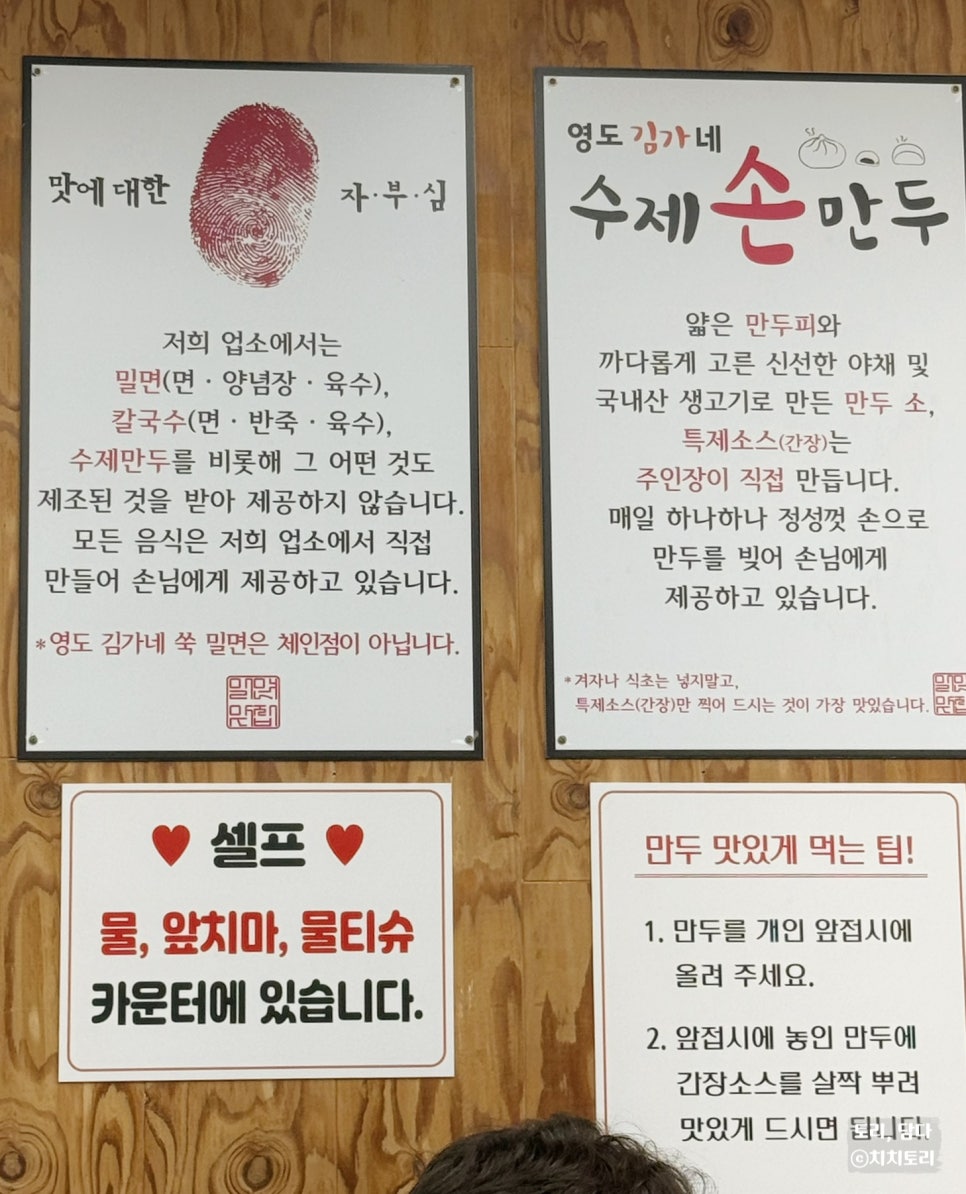 맛에 대한 자·부·심
저희 업소에서는
밀면(면 · 양념장 · 육수),
칼국수(면 · 반죽 · 육수),
수제만두를 비롯해 그 어떤 것도
제조된 것을 받아 제공하지 않습니다.
모든 음식은 저희 업소에서 직접
만들어 손님에게 제공하고 있습니다.
*영도 김가네 쑥 밀면은 체인점이 아닙니다.
영도 김가네
수제 손 만두
얇은 만두피와
까다롭게 고른 신선한 야채 및
국내산 생고기로 만든 만두 소,
특제소스(간장)는
주인장이 직접 만듭니다.
매일 하나하나 정성껏 손으로
만두를 빚어 손님에게
제공하고 있습니다.
*겨자나 식초는 넣지말고,
특제소스(간장)만 찍어 드시는 것이 가장 맛있습니다.
♥ 셀프 ♥
물, 앞치마, 물티슈
카운터에 있습니다.
만두 맛있게 먹는 팁!
1. 만두를 개인 앞접시에
올려 주세요.
2. 앞접시에 놓인 만두에
간장소스를 살짝 뿌려
맛있게 드시면 됩니다.
토리, 담다
ⓒ치치토리